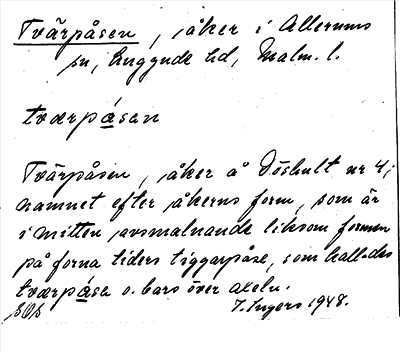 Tvärpåsen, åker i Allerums
sn, Luggude hd, Malm. l.
tværpåsan
Tvärpåsen, åker å Döshult nr 4;
namnet efter åkerns form, som är
i mitten avsmalnande liksom formen
på forna tiders tiggarpåse, som kallades
tværpåsa o. bars över axeln.
I. Ingers 1948.